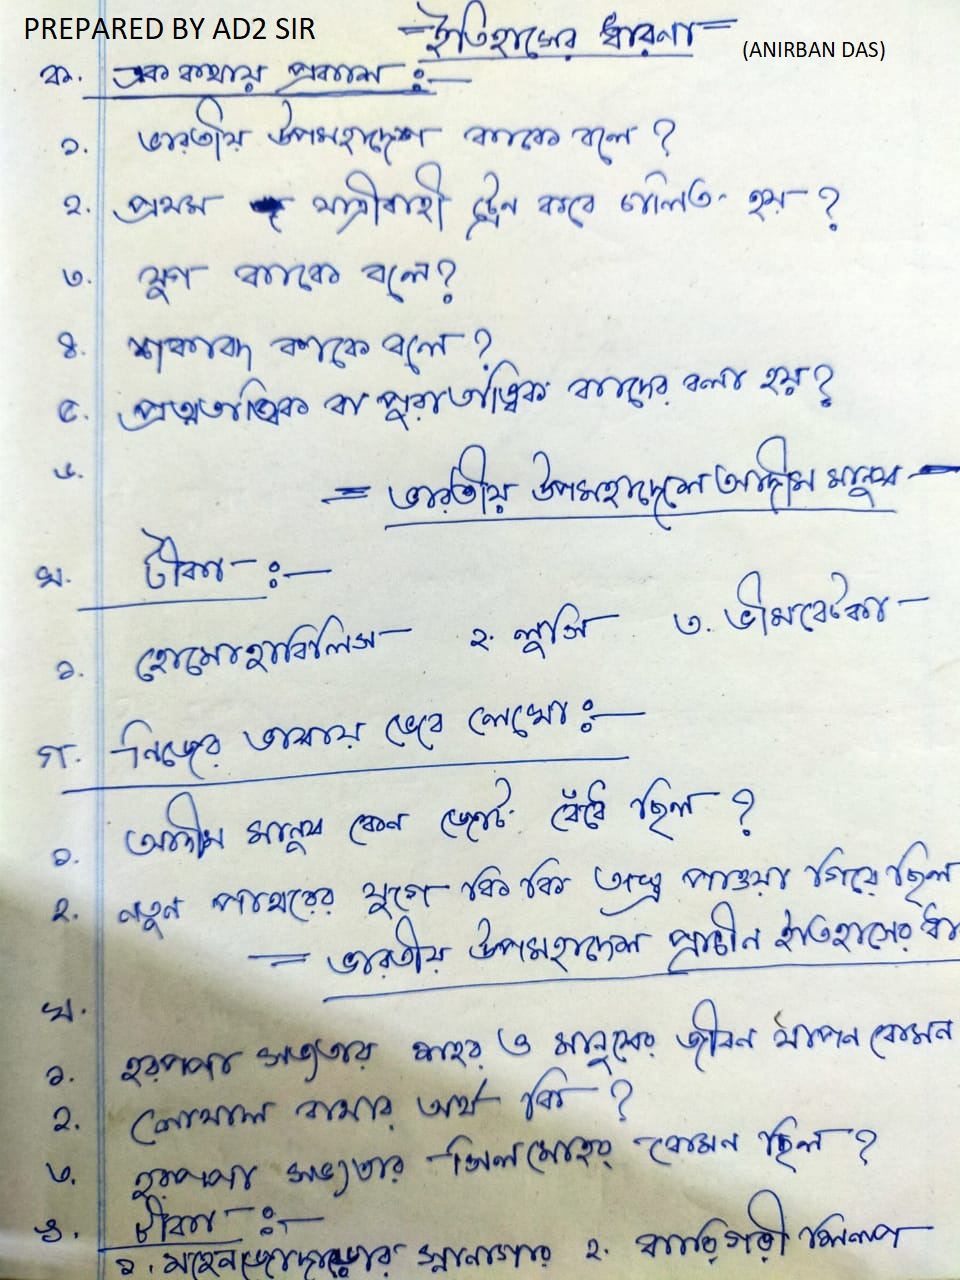 PREPARED BY AD2 SIR
ইতিহাসের ধারনা
(ANIRBAN DAS)
ক. এক কথায় প্রকাশ :—
১. ভারতীয় উপমহাদেশ কাকে বলে ?
২. প্রথম যাত্রীবাহী ট্রেন কবে চালিত হয় ?
৩. যুগ কাকে বলে ?
৪. শকাব্দ কাকে বলে ?
৫. প্রত্নতাত্ত্বিক বা পুরাতাত্ত্বিক কাদের বলা হয় ?
৬.
= ভারতীয় উপমহাদেশে আদিম মানুষ —
খ. টীকা :—
১. হোমোহাবিলিস ২. লুসি ৩. ভীমবেটকা
গ. নিজের ভাষায় ভেবে লেখো :—
১. আদিম মানুষ কেন জোট বেঁধে ছিল ?
২. নতুন পাথরের যুগে কি কি অস্ত্র পাওয়া গিয়ে ছিল
= ভারতীয় উপমহাদেশ প্রাচীন ইতিহাসের ধা
ঘ.
১. হরপ্পা সভ্যতার শহর ও মানুষের জীবন যাপন কেমন
২. লোথাল কথার অর্থ কি ?
৩. হরপ্পা সভ্যতার সিলমোহর কেমন ছিল ?
ঙ. টীকা :—
১. মহেনজোদাড়োর স্নানাগার ২. কারিগরী শিল্প